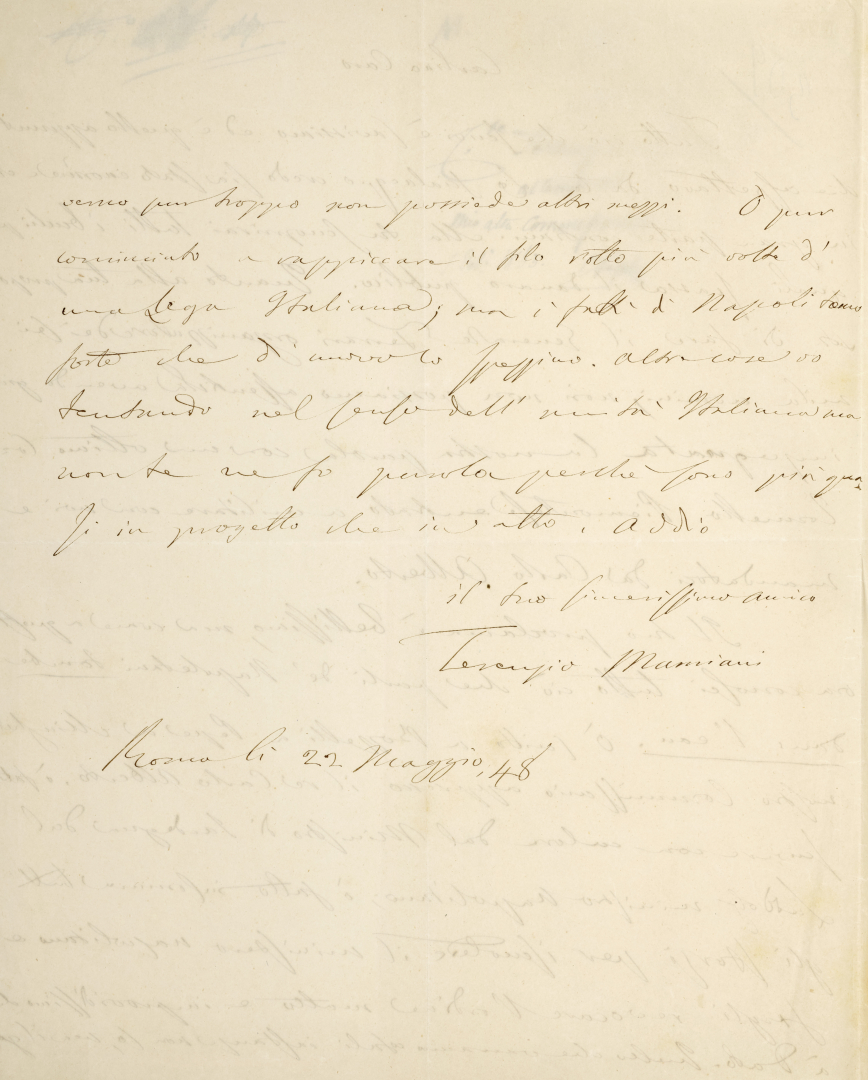 verno pur troppo non possiede altri mezzi. Ò pur
cominciato a rappiccare il filo rotto più volte d'
una Lega Italiana; ma i fatti di Napoli temo
forte che di nuovo lo spezzino. Altre cose vo
tentando nel senso dell' unità Italiana ma
non te ne fo parola perchè sono più qua-
si in progetto che in atto. Addio
il tuo sincerissimo amico
Terenzio Mamiani
Roma li 22 Maggio, 48